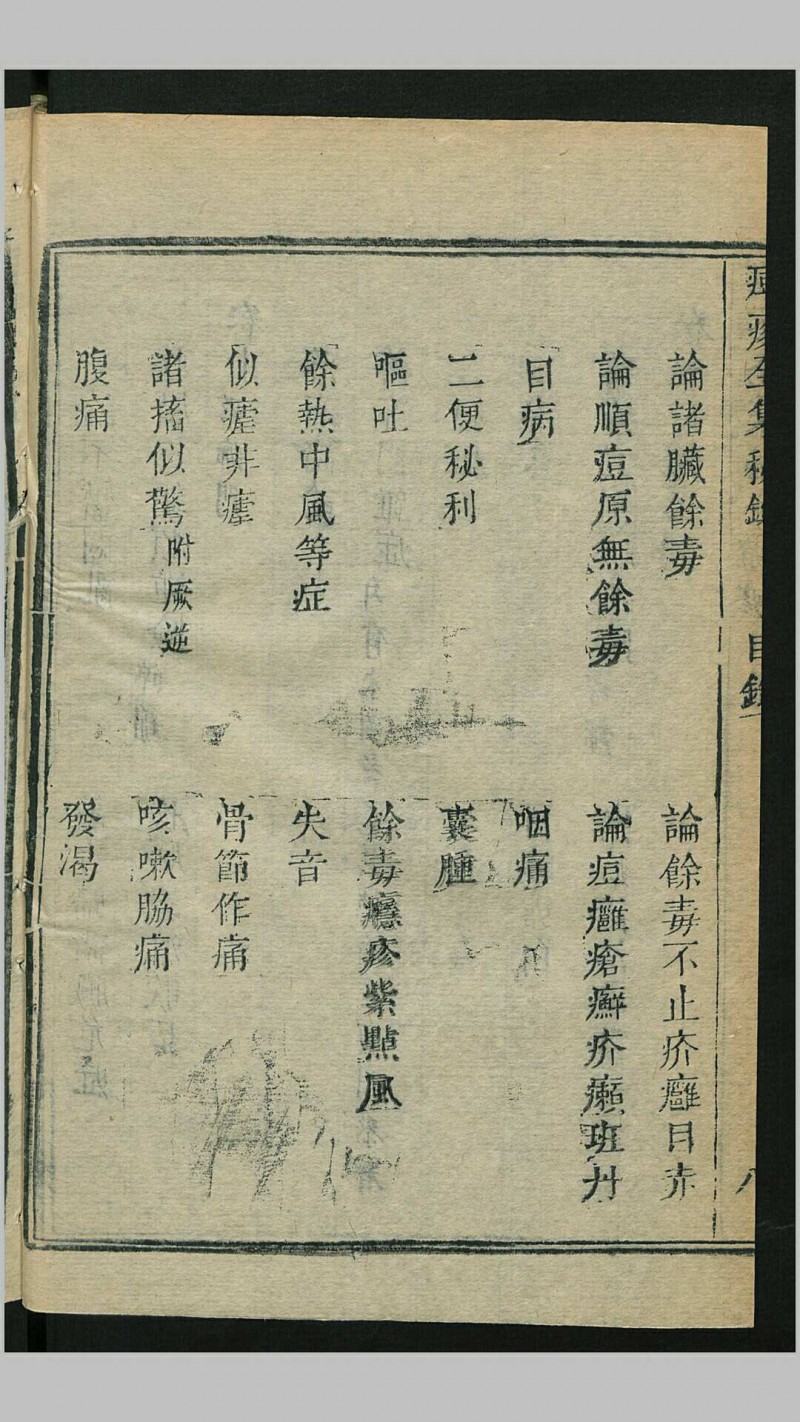 痘疹全集秘錄 目錄 八
論諸臟餘毒 論餘毒不止疥癰目赤
論順痘原無餘毒 論痘癰瘡癬疥癩班丹
目病 咽痛
二便秘利 囊腫
嘔吐 餘毒癮疹紫點風
餘熱中風等症 失音
似瘧非瘧 骨節作痛
諸搐似驚附厥逆 咳嗽脇痛
腹痛 發渴